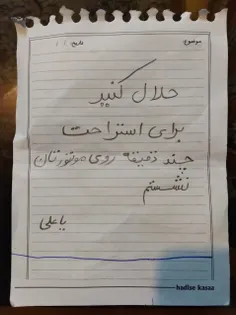 موضوع:
تاریخ: / /
حلال کنید
برای استراحت
چند دقیقه روی موتورتان
نشستم
یاعلی
hadise kasaa